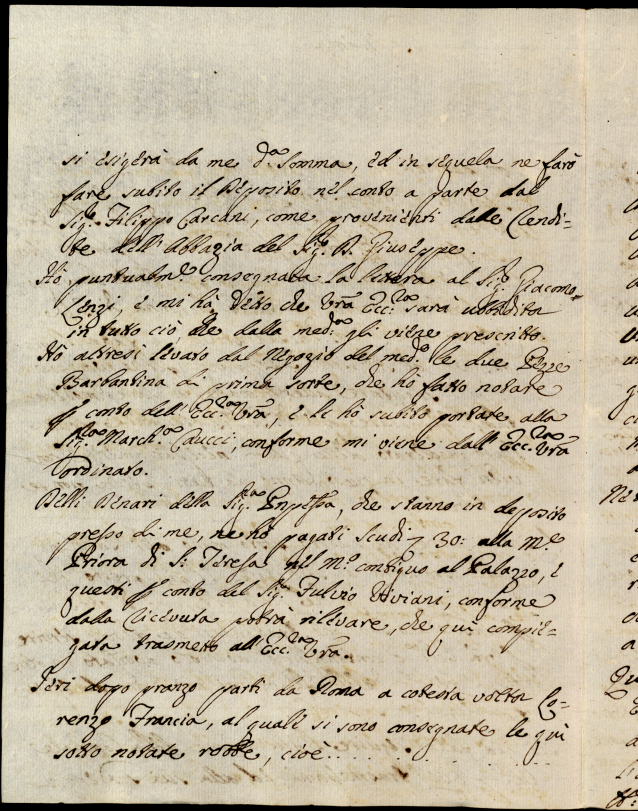 si esigerà da me d.ª somma, ed in sequela ne farò
fare subito il Deposito nel conto a parte dal
Sig.ʳ Filippo Carcani, come provenienti dalle Rendi=
te dell'Abbazia del Sig.ʳ D. Giuseppe.
Hò puntualm.ᵉ consegnata la lettera al Sig.ʳ Giacomo
Lenzi, e mi hà detto che Vrã Ecc.ᶻᵃ sarà ubbidita
in tutto ciò che dalla med.ª gli viene prescritto.
Hò altresì levato dal Negozio del med.º le due Pezze
Barbantina di prima sorte, che hò fatto notare
p conto dell'Ecc.ᶻᵃ Vrã, e le hò subito portate alla
Sig.ʳᵃ March.ˢᵃ Caucci, conforme mi viene dall'Ecc.ᶻᵃ Vrã
ordinato.
Delli Denari della Sig.ʳᵃ Pnpessa, che stanno in deposito
presso di me, ne hò pagati Scudi 30: alla M.ᵉ
Priora di S. Teresa nel M.º contiguo al Palazzo, e
questi p conto del Sig.ʳ Fulvio Viviani, conforme
dalla Ricevuta potrà rilevare, che quì compie=
gata trasmetto all'Ecc.ᶻᵃ Vrã.
Ieri dopo pranzo partì da Roma a cotesta volta Lo=
renzo Francia, al quale si sono consegnate le quì
sotto notate robbe, cioè . . . . . . . .